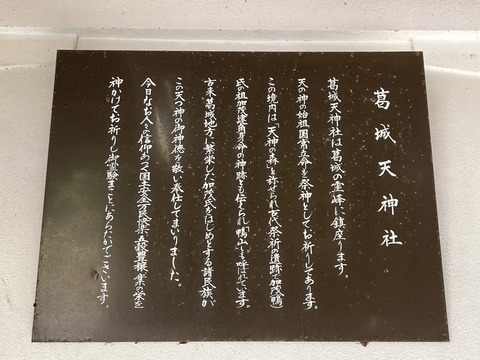 葛城天神社
葛城天神社は葛城の霊峰に鎮座ります。
天の神の始祖国常立命を祭神としてお祈りしてあります。
この境内は「天神の森」と許せられ古代祭祈の遺跡で加茂(鴨)
氏の祖加茂建角身命の神跡とも伝えられ鴨山とも呼ばれています。
古来葛城地方に繁栄した加茂氏をはじめとする諸民族が
この天つ神の御神徳を敬い奉仕してまいりました。
今日なお人々の信仰あつく国土安全万民快楽五穀豊穣業の栄を
神かけてお祈りし御霊験まことにあらたかでございます。